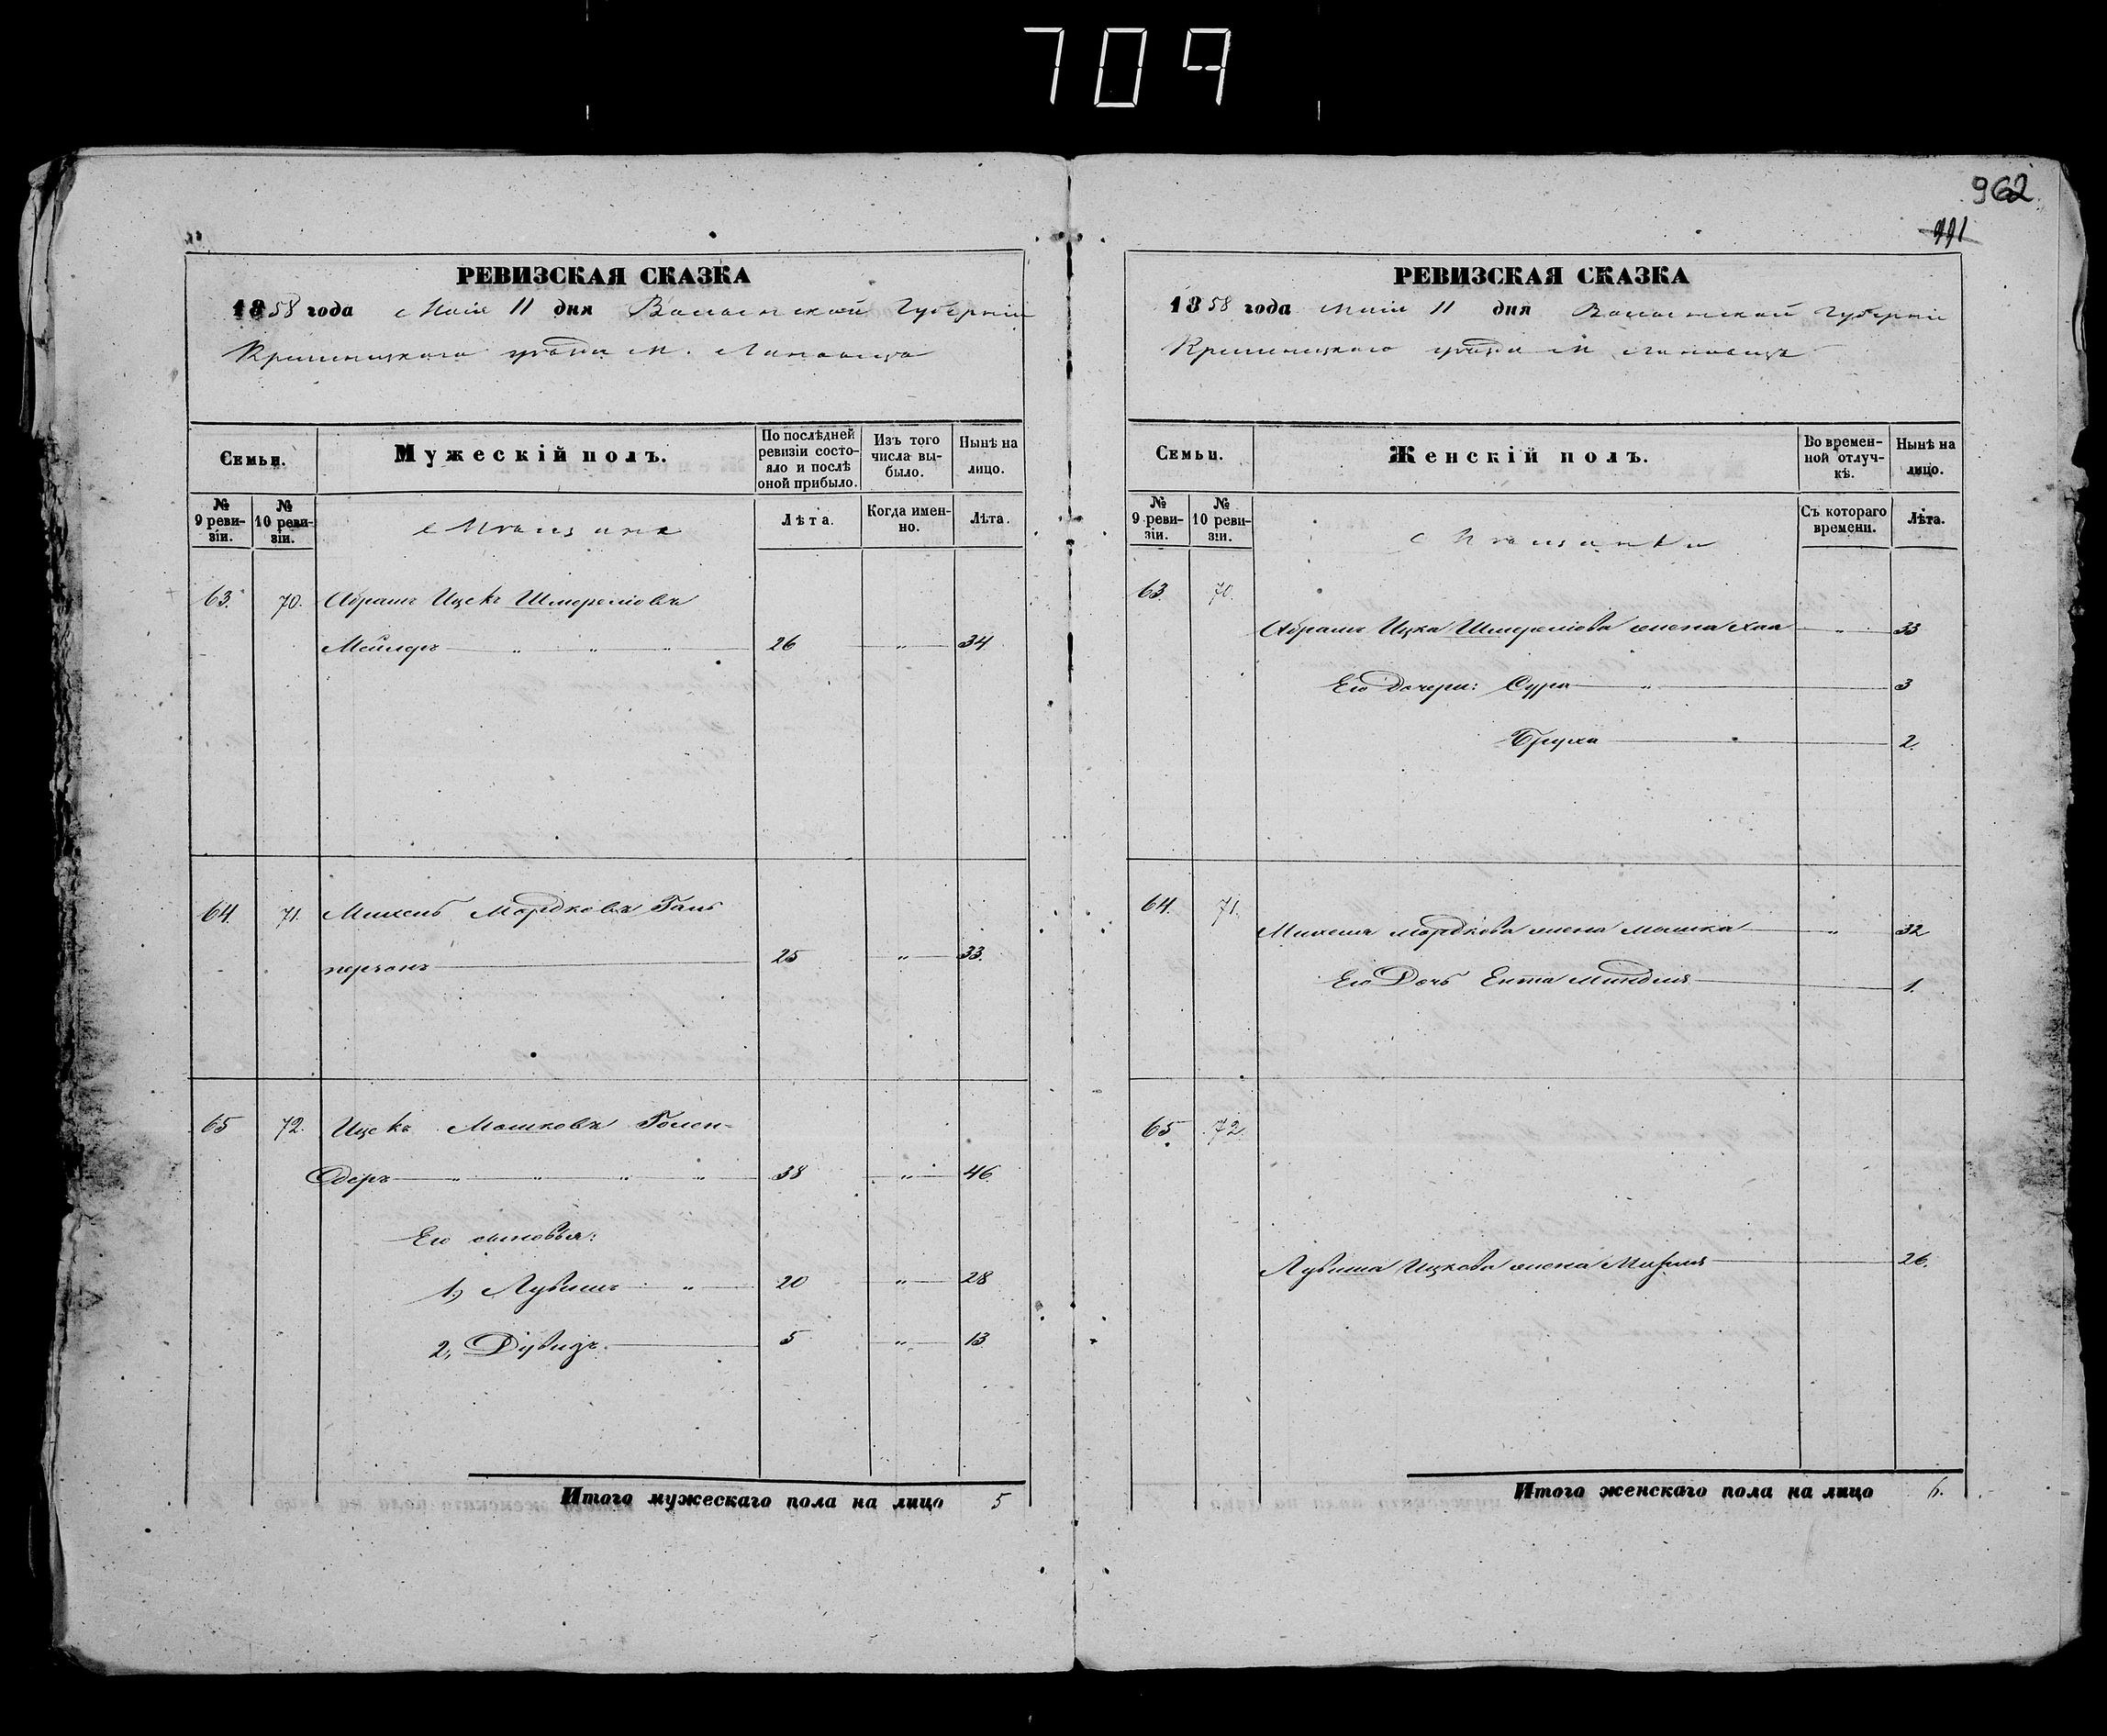 709
962
991
РЕВИЗСКАЯ СКАЗКА
1858 года Маія 11 дня Волынской Губерніи
Кременецкаго уѣзда М. Лановецъ
Семьи.
Мужескій полъ.
По послѣдней ревизіи состояло и послѣ оной прибыло.
Изъ того числа выбыло.
Нынѣ на лицо.
№ 9 ревизіи.
№ 10 ревизіи.
Мѣщане
Лѣта.
Когда именно.
Лѣта.
63. 70. Абрамъ Ицекъ Шмереліовъ
Мейлеръ 26 " 34
64. 71. Михель Мордковъ Галь
перзонъ 25 " 33.
65 72. Ицекъ Мошковъ Голен-
деръ 38 " 46
Его сыновья:
1.) Лувишъ " 20 " 28
2, Дувидъ. 5 " 13
Итого мужескаго пола на лицо 5
РЕВИЗСКАЯ СКАЗКА
1858 года Маія 11 дня Волынской Губерніи
Кременецкаго уѣзда М Лановецъ
Семьи.
Женскій полъ.
Во временной отлучкѣ.
Нынѣ на лицо.
№ 9 ревизіи.
№ 10 ревизіи.
Мѣщанки
Съ котораго времени.
Лѣта.
63 70.
Абрамъ Ицка Шмереліова жена Хая " 33
Его Дочери: Сура " 3
Бруха 2.
64. 71.
Михеля Мордкова жена Мошка " 32
Его Дочь Ента Миндля 1.
65. 72.
Лувиша Ицкова жена 26.
Итого женскаго пола на лицо 6.